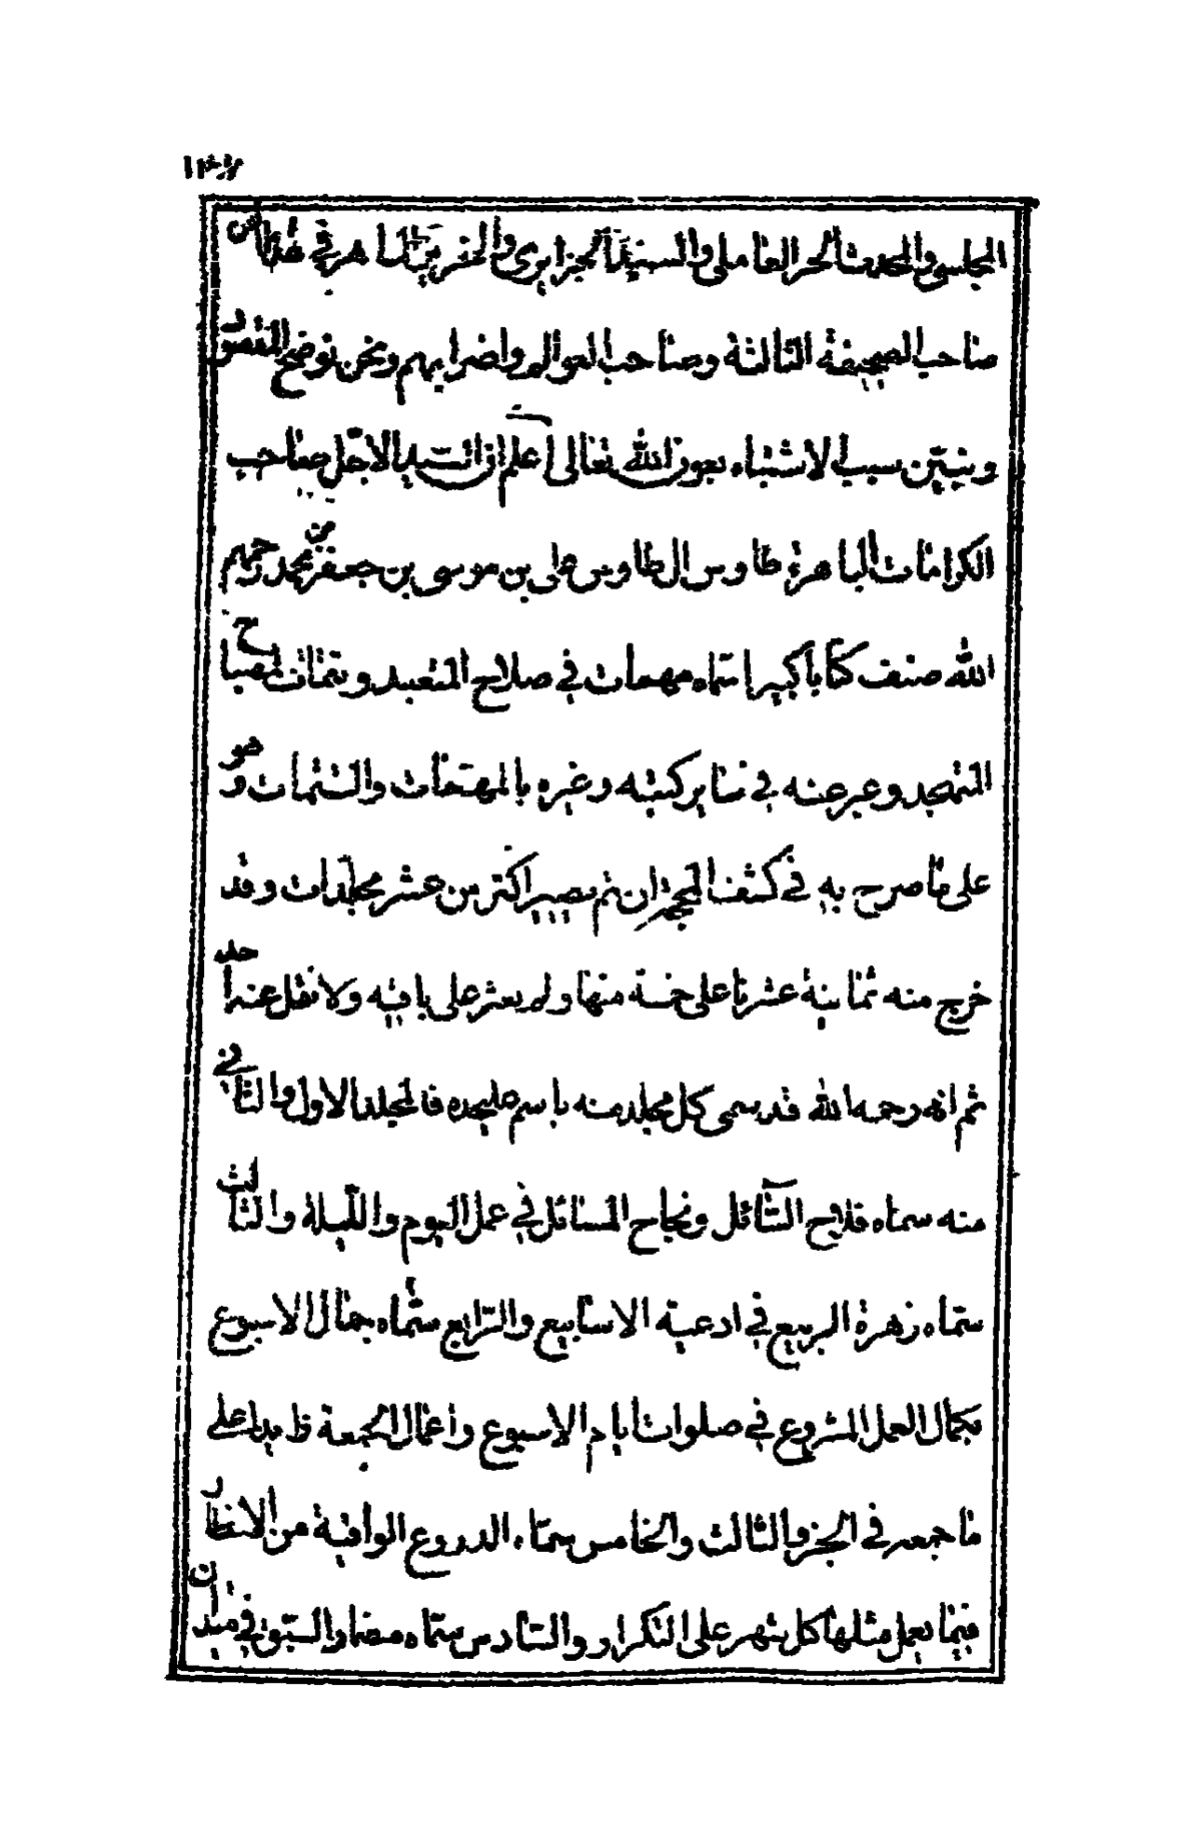 المجلسى والمحدث الحر العاملى والسيد الجزايرى و الماهر فى هذا الفن
صاحب الصحيفة الثالثة وصاحب العوالم واضرابهم ونحن نوضح المقصود
ونبيّن سبب الاشتباه بعون الله تعالى اعلم ان السيد الاجل صاحب
الكرامات الباهرة طاوس ال طاوس على بن موسى بن جعفر بن محمد رحمهم
الله صنف كتابا كبيرا سماه مهمات فى صلاح المتعبد وتتمات لمصباح
المتهجد وعبر عنه فى ساير كتبه وغيره بالمهمات والتتمات وهو
على ما صرح به فى كشف المحجة ان تم يصير اكثر من عشر مجلدات وقد
خرج منه ثمانية عثرنا على خمسة منها ولم يعثر على باقيه ولا نقل عنه احد
ثم انه رحمه الله قد سمى كل مجلد منه باسم عليحده فالمجلد الاول والثانى
منه سماه فلاح السائل ونجاح المسائل فى عمل اليوم والليلة والثالث
سماه زهرة الربيع فى ادعية الاسابيع والرابع سماه جمال الاسبوع
بكمال العمل المشروع فى صلوات ايام الاسبوع واعمال الجمعة على
ما جمعه فى الجزء الثالث والخامس سماه الدروع الواقية من الاخطار
فيما يعمل مثلها كل شهر على التكرار والسادس سماه مضمار السبق فى ميدان